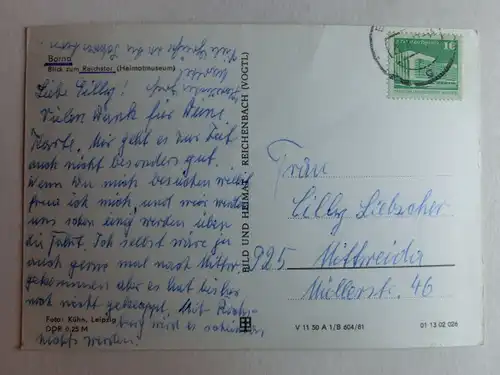 Borna
Blick zum Reichstor (Heimatmuseum)
Liebe Cilly!
Vielen Dank für Deine
Karte. Mir geht es zur Zeit
auch nicht besonders gut.
Wenn Du mich besuchen willst
freu ich mich, und wir werden
uns schon einig werden über
die Fahrt. Ich selbst wäre ja
auch gerne mal nach Mittw.
gekommen aber es hat bisher
noch nicht geklappt. Mit
es scheinbar
nichts werden.
Foto: Kühn, Leipzig
DDR 0,25 M
BILD UND HEIMAT REICHENBACH (VOGTL)
DDR
10
Frau
Cilly Liebscher
925 Mittweida
Müllerstr. 46
V 11 50 A 1/B 604/81
01 13 02 026